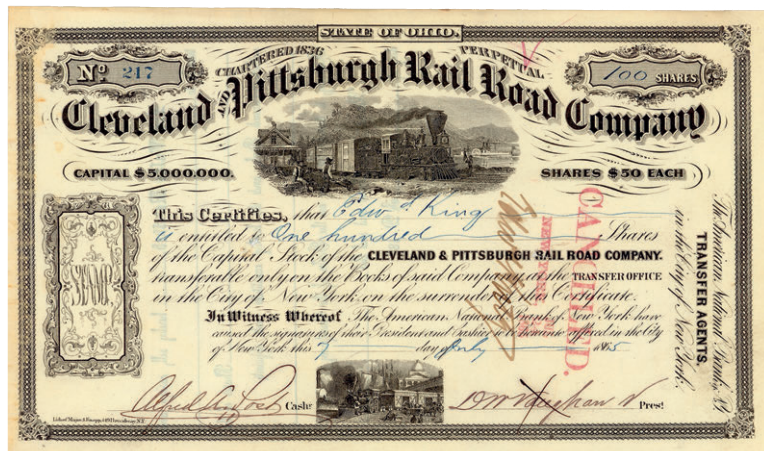 STATE OF OHIO.
CHARTERED 1836 PERPETUAL
Nº 217
100 SHARES
Cleveland AND Pittsburgh Rail Road Company
CAPITAL $5,000,000.
SHARES $50 EACH
This Certifies, that Edwd King
is entitled to One hundred Shares
of the Capital Stock of the CLEVELAND & PITTSBURGH RAIL ROAD COMPANY.
transferable only on the Books of said Company at the TRANSFER OFFICE
in the City of New York on the surrender of this Certificate.
In Witness Whereof The American National Bank of New York have
caused the signatures of their President and Cashier to be hereunto affixed in the City
of New York this 7 day July 1865
Cashr
Prest
STAMP.
CANCELLED.
NEW
The American National Bank, N.Y.
TRANSFER AGENTS.
in the City of New York.